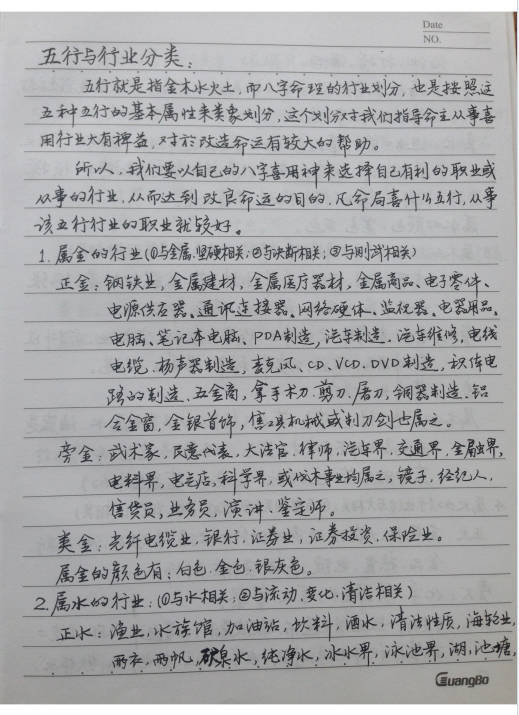 Date
NO.
五行与行业分类：
五行就是指金木水火土，而八字命理的行业划分，也是按照这
五种五行的基本属性来类象划分，这个划分对于我们指导命主从事喜
用行业大有裨益，对于改造命运有较大的帮助。
所以，我们要以自己的八字喜用神来选择自己有利的职业或
从事的行业，从而达到改良命运的目的，凡命局喜什么五行，从事
该五行行业的职业就较好。
1. 属金的行业（①与金属、坚硬相关；②与决断相关；③与刚武相关）
正金：钢铁业，金属建材，金属医疗器材，金属商品、电子零件、
电源供应器、通讯连接器、网络硬体、监视器、电器用品、
电脑、笔记本电脑、PDA制造，汽车制造，汽车维修，电线
电缆、扬声器制造，麦克风、CD、VCD、DVD制造，积体电
路的制造、五金商，拿手术刀、剪刀、屠刀，铜器制造、铝
合金窗，金银首饰，机械或利刀剑也属之。
旁金：武术家，民意代表，大法官，律师，汽车界，交通界，金融界，
电料界，电器店，科学界，或伐木事业均属之，镜子，经纪人，
信贷员，业务员，演讲、鉴定师。
类金：光纤电缆业，银行，证券业，证券投资，保险业。
属金的颜色有：白色、金色、银灰色。
2. 属水的行业：（①与水相关；②与流动、变化、清洁相关）
正水：渔业，水族馆，加油站，饮料，酒水，清洁性质，海轮业，
雨衣，雨帆，矿泉水，纯净水，冰水界，泳池界，湖，池塘，
GuangBo